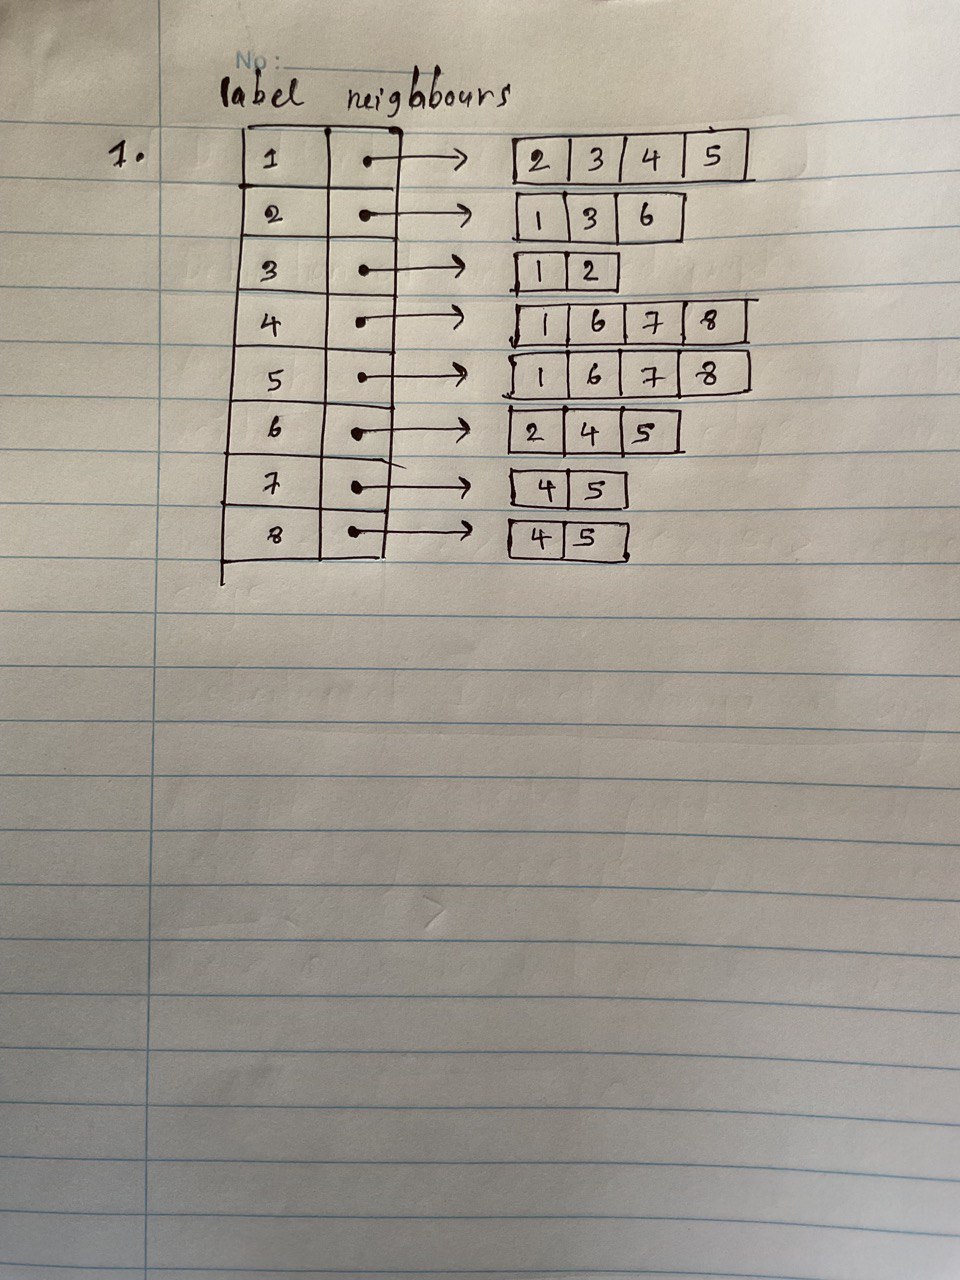 No:
label neighbours
1. 1 2 3 4 5
2 1 3 6
3 1 2
4 1 6 7 8
5 1 6 7 8
6 2 4 5
7 4 5
8 4 5